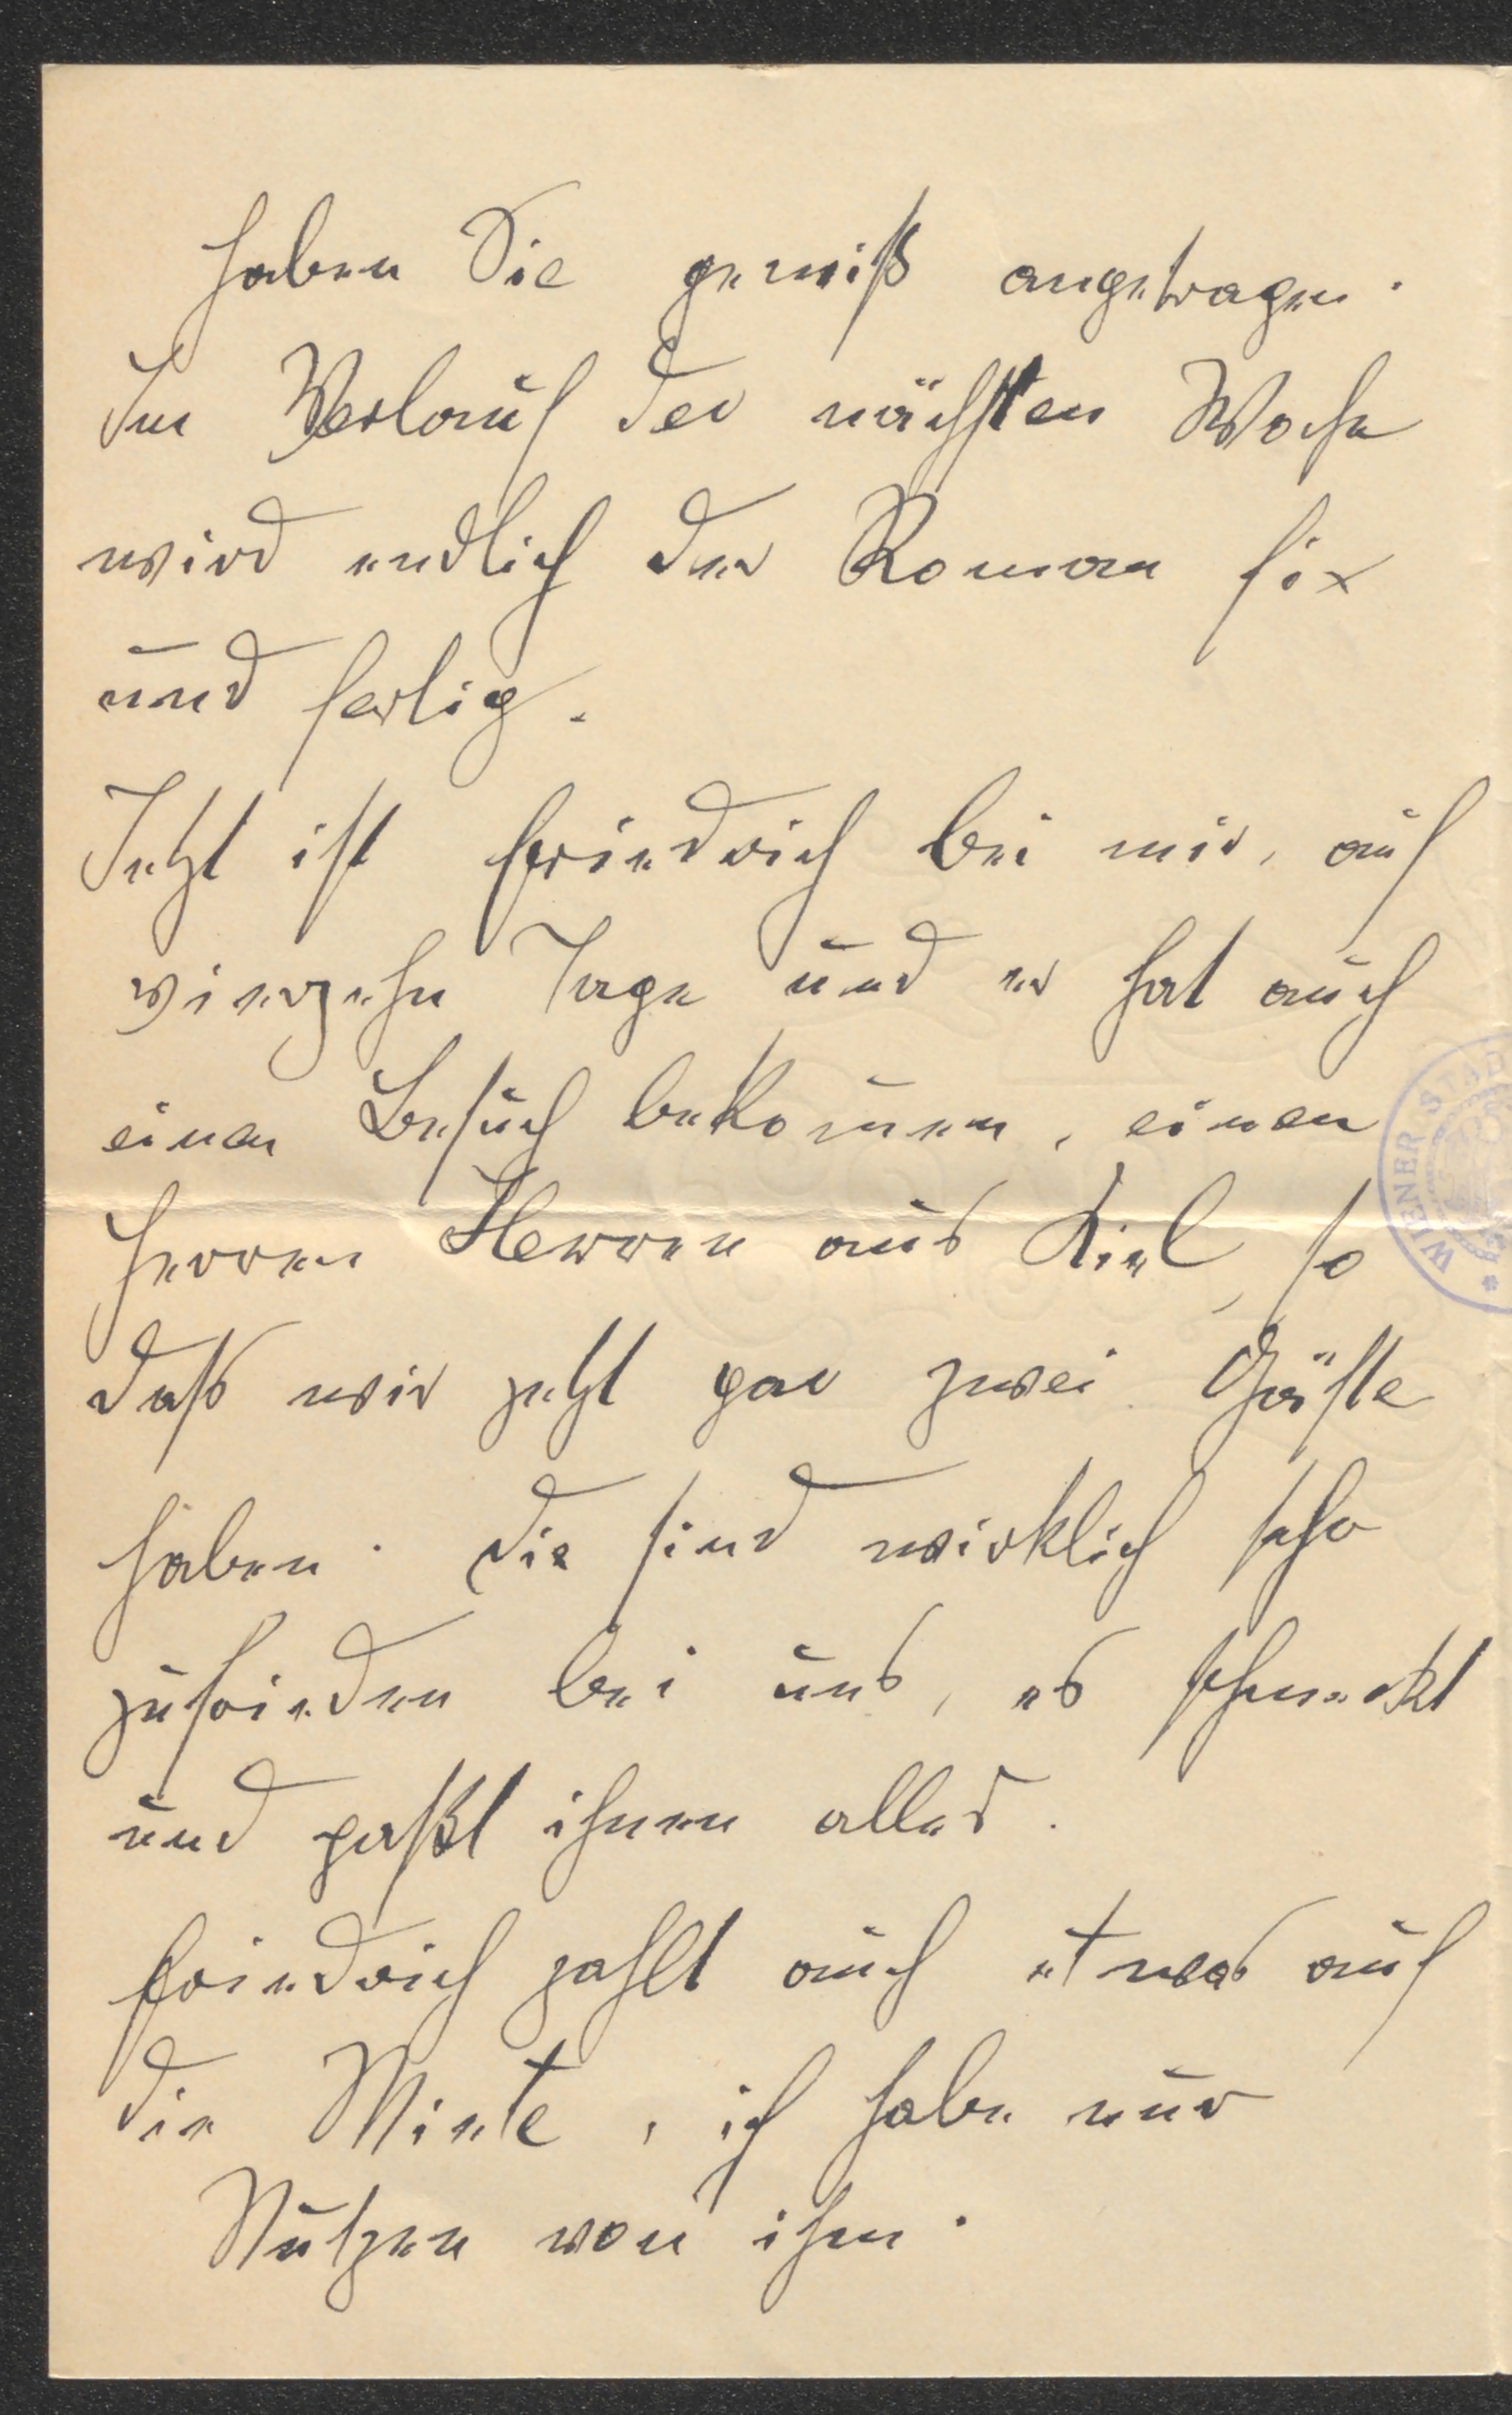 haben Sie gewiß angetragen.
Im Verlauf der nächsten Woche
wird endlich der Roman fix
und fertig.
Jetzt ist Friedrich bei mir, auf
vierzehn Tage und er hat auch
einen Besuch bekommen, einen
Herren Herren aus Kiel, so
daß wir jetzt gar zwei Gäste
haben. Die sind wirklich sehr
zufrieden bei uns, es schmeckt
und paßt ihnen alles.
Friedrich zahlt auch etwas auf
die Miete, ich habe nur
Nutzen von ihm.
WIENER STAD